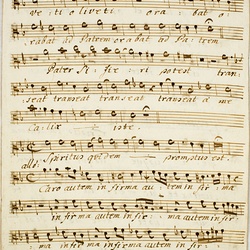 ve: ti oliveti ora: bat o:
rabat ad Patrem orabat ad Pa: trem
Pater Si fie: ri potest tran:
seat transeat transeat a me
Ca: lix iste.
Spiritus quidem promptus est.
allo:
Caro autem infirma au: tem in fir: ma
infirma autem in fir: ma autem in fir:
ma infir ma infirma autem in fir: